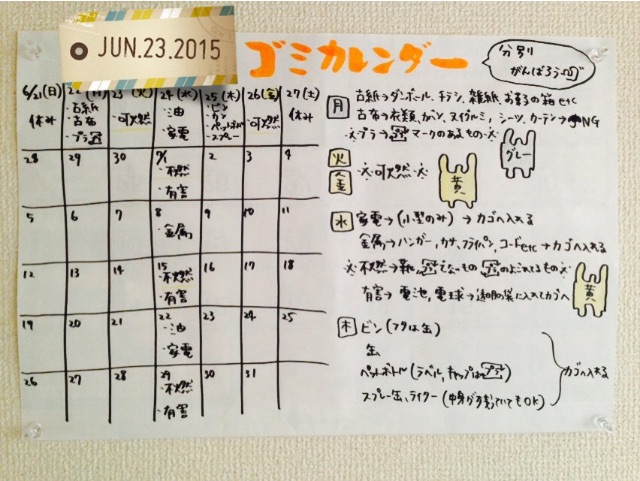 JUN.23.2015
ゴミカレンダー
分別
がんばろう
6/21(日) 22(月) 23(火) 24(水) 25(木) 26(金) 27(土)
休み ・古紙 ・古布 ・プラ ・可燃 ・油 ・家電 ・ビン ・カン ・ペットボトル ・スプレー ・可燃 休み
28 29 30 7/1 2 3 4
・不燃
・有害
5 6 7 8 9 10 11
・金属
12 13 14 15 16 17 18
・不燃
・有害
19 20 21 22 23 24 25
・油
・家電
26 27 28 29 30 31
・不燃
・有害
月 古紙→ダンボール、チラシ、雑紙、お菓子の箱etc
古布→衣類、カバン、ヌイグルミ、シーツ、カーテン→NG
※プラ→プラマークのあるもの※
グレー
火
金
※可燃※
黄
水 家電→(小型のみ)→カゴへ入れる
金属→ハンガー、カサ、フライパン、コードetc→カゴへ入れる
※不燃→靴、プラでないもの プラのよごれてるもの※
有害→電池、電球→透明の袋に入れてカゴへ
黄
木 ビン(フタは缶)
缶
ペットボトル(ラベル、キャップはプラ)
スプレー缶、ライター(中身が残っていてもOK)
カゴへ入れる